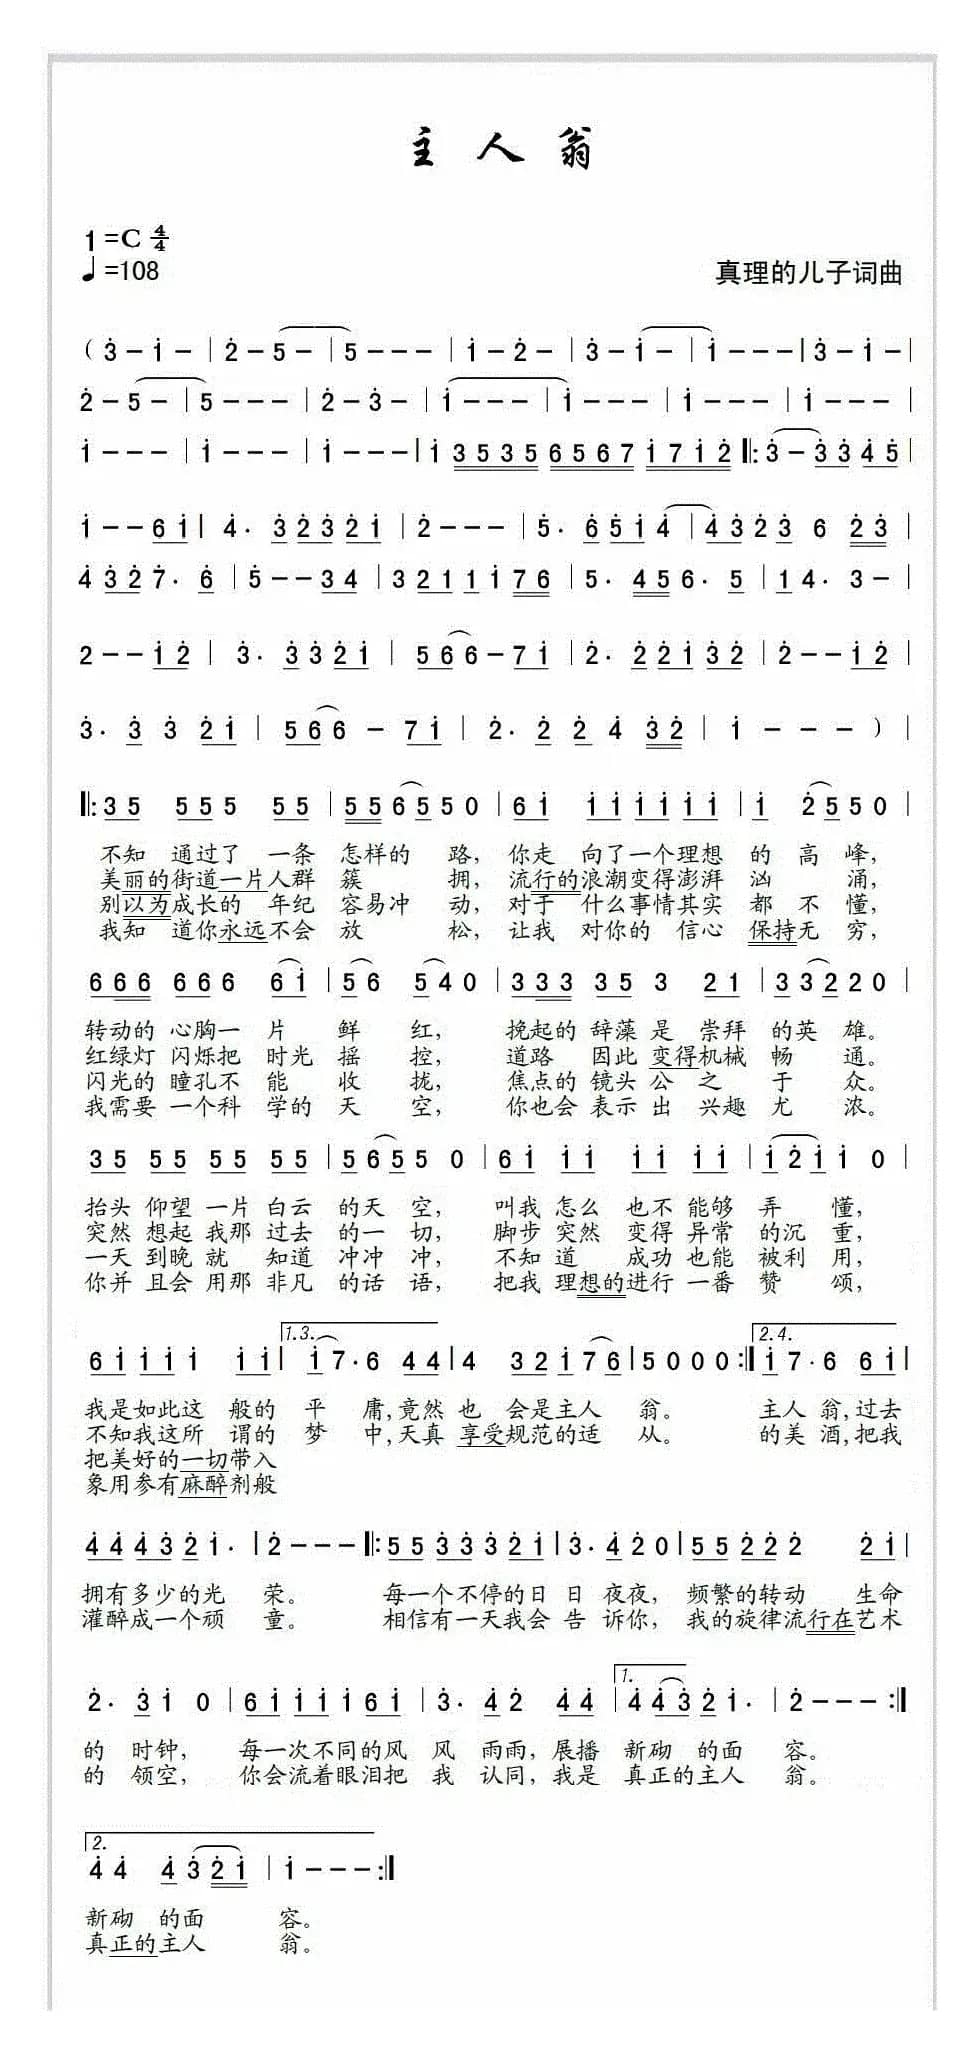 主人翁
1=C 4/4
♩=108
真理的儿子词曲
(3̇ – 1̇ – | 2̇ – 5 – | 5 – – – | 1̇ – 2̇ – | 3̇ – 1̇ – | 1̇ – – – | 3̇ – 1̇ – |
2̇ – 5 – | 5 – – – | 2̇ – 3̇ – | 1̇ – – – | 1̇ – – – | 1̇ – – – | 1̇ – – – |
1̇ – – – | 1̇ – – – | 1̇ – – – | 1̇ 3535 6567 1̇71̇2̇ ‖: 3̇ – 3̇3̇ 4̇5̇ |
1̇ – – 61̇ | 4̇· 3̇ 2̇3̇ 2̇1̇ | 2̇ – – – | 5̇· 6̇ 5̇1̇ 4̇ | 4̇3̇ 2̇3̇ 6 2̇3̇ |
4̇ 3̇2̇ 7̇· 6̇ | 5̇ – – 34 | 3 21 11̇ 76 | 5· 45 6· 5 | 1 4· 3 – |
2 – – 1̇2̇ | 3̇· 3̇ 3̇2̇1̇ | 566 – 71̇ | 2̇· 2̇ 2̇1̇ 3̇2̇ | 2̇ – – 1̇2̇ |
3̇· 3̇ 3̇ 2̇1̇ | 566 – 71̇ | 2̇· 2̇ 2̇ 4̇ 3̇2̇ | 1̇ – – – ) |
‖: 35 555 55 | 556550 | 61̇ 1̇1̇1̇1̇1̇1̇ | 1̇ 2̇550 |
不知 通过了 一条 怎样的 路， 你走 向了一个理想 的 高 峰，
美丽的街道一片人群 簇 拥， 流行的浪潮变得澎湃 汹 涌，
别以为成长的 年纪 容易冲 动， 对于 什么事情其实 都 不 懂，
我知 道你永远不会 放 松， 让我 对你的 信心 保持无 穷，
666 666 61̇ | 56 540 | 333 353 21 | 333220 |
转动的 心胸一 片 鲜 红， 挽起的 辞藻 是 崇拜 的英 雄。
红绿灯 闪烁把 时光 摇 控， 道路 因此 变得机械 畅 通。
闪光的 瞳孔不 能 收 拢， 焦点的 镜头 公 之 于 众。
我需要 一个科 学的 天 空， 你也会 表示 出 兴趣 尤 浓。
35 55 55 55 | 56550 | 61̇ 1̇1̇ 1̇1̇ 1̇1̇ | 1̇2̇1̇1̇0 |
抬头 仰望 一片 白云 的天 空， 叫我 怎么 也不 能够 弄 懂，
突然 想起 我那 过去 的一 切， 脚步 突然 变得 异常 的沉 重，
一天 到晚 就 知道 冲冲 冲， 不知 道 成功 也能 被利 用，
你并 且会 用那 非凡 的话 语， 把我 理想的进行 一番 赞 颂，
61̇1̇1̇1̇ 1̇1̇ | 1.3. 1̇7·6 44 | 4 321̇76 | 5000 :‖ 2.4. 1̇7·6 61̇ |
我是如此这 般的 平 庸，竟然 也 会是主人 翁。 主人 翁，过去
不知我这所 谓的 梦 中，天真 享受规范的适 从。 的美 酒，把我
把美好的一切带入
象用参有麻醉剂般
4̇4̇4̇3̇2̇1̇· | 2̇ – – – ‖: 553̇3̇3̇2̇1̇ | 3̇·4̇2̇0 | 552̇2̇2̇ 2̇1̇ |
拥有多少的光 荣。 每一个不停的日 日 夜夜， 频繁的转动 生命
灌醉成一个顽 童。 相信有一天我会 告 诉你， 我的旋律流行在艺术
2̇· 3̇1̇ 0 | 61̇1̇1̇1̇61̇ | 3̇· 4̇2̇ 4̇4̇ | 1. 4̇4̇3̇2̇1̇· | 2̇ – – – :‖
的 时钟， 每一次不同的风 风 雨雨，展播 新砌 的面 容。
的 领空， 你会流着眼泪把 我 认同，我是 真正的主人 翁。
2. 4̇4̇ 4̇3̇2̇1̇ | 1̇ – – – :‖
新砌 的面 容。
真正的主人 翁。